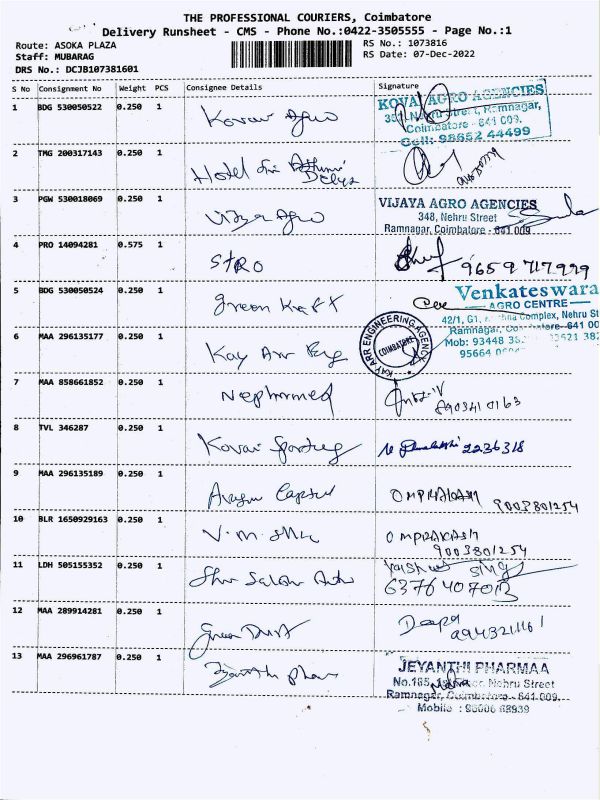 THE PROFESSIONAL COURIERS, Coimbatore
Delivery Runsheet - CMS - Phone No.:0422-3505555 - Page No.:1
Route: ASOKA PLAZA
RS No.: 1073816
Staff: MUBARAG
RS Date: 07-Dec-2022
DRS No.: DCJB107381601
S No Consignment No Weight PCS Consignee Details Signature
1 BDG 530050522 0.250 1 Kovai Agro
KOVAI AGRO AGENCIES
Nehru Street, Ramnagar,
Coimbatore - 641 009.
Cell: 98652 44499
2 TMG 200317143 0.250 1 Hotel Sri
3 PGW 530018069 0.250 1 Vijaya Agro
VIJAYA AGRO AGENCIES
348, Nehru Street
Ramnagar, Coimbatore - 641 009
4 PRO 14094281 0.575 1 STRO
9659717999
5 BDG 530050524 0.250 1 Green Kraft
Venkateswara
AGRO CENTRE
42/1, G1, Complex, Nehru St
Ramnagar, 641 00
Mob: 93448
95664
6 MAA 296135177 0.250 1 Kay Arr Eng
KAY ARR ENGINEERING AGENCY
COIMBATORE
7 MAA 858661852 0.250 1 Nephromed
8903410163
8 TVL 346287 0.250 1 Kovai Sporting
2236318
9 MAA 296135189 0.250 1 Capital OMPRAKASH
9003801254
10 BLR 1650929163 0.250 1 V.M. OMPRAKASH
9003801254
11 LDH 505155352 0.250 1 Shri Salasar Auto Singh
6376407013
12 MAA 289914281 0.250 1 Green Trust Deepa
13 MAA 296961787 0.250 1 Jeyanthi Pharma
JEYANTHI PHARMAA
No.185, Nehru Street
Ramnagar, Coimbatore - 641 009.
Mobile : 98006 68939